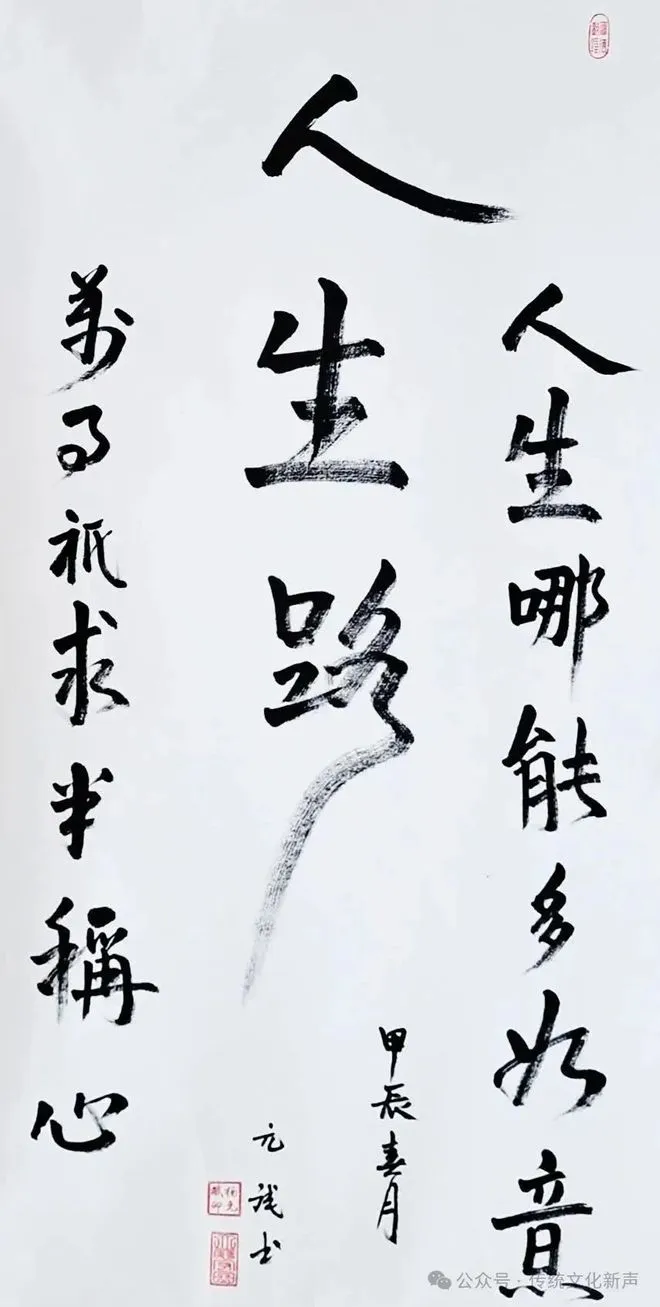 人生哪能多如意
人生路
萬事祇求半稱心
甲辰春月
元誠書
公众号·传统文化新声